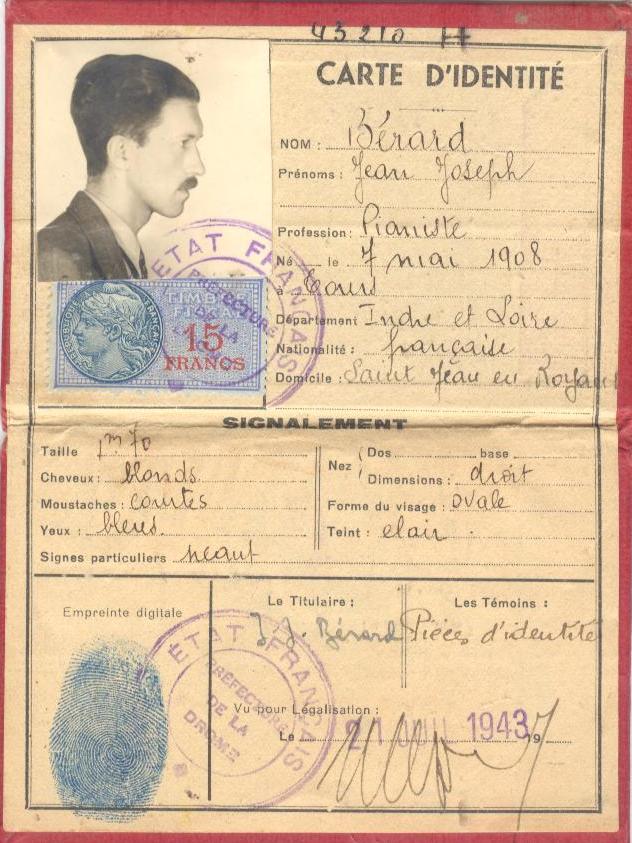 43210 H
CARTE D'IDENTITÉ
NOM : Bérard
Prénoms : Jean Joseph
Profession : Pianiste
Né le 7 mai 1908
à Tours
Département Indre et Loire
Nationalité : française
Domicile : Saint Jean en Royans
ETAT FRANÇAIS
PREFECTURE
DE LA
TIMBRE
FISCAL
15
FRANCS
SIGNALEMENT
Taille 1m 70
Cheveux : blonds
Moustaches : courtes
Yeux : bleus
Signes particuliers néant
Nez Dos base
Dimensions : droit
Forme du visage : ovale
Teint : clair
Empreinte digitale
Le Titulaire :
J. J. Bérard
Les Témoins :
Pièces d'identité
ETAT FRANÇAIS
PREFECTURE
DE LA
DROME
Vu pour Légalisation :
Le 21 JUIL 1943 19